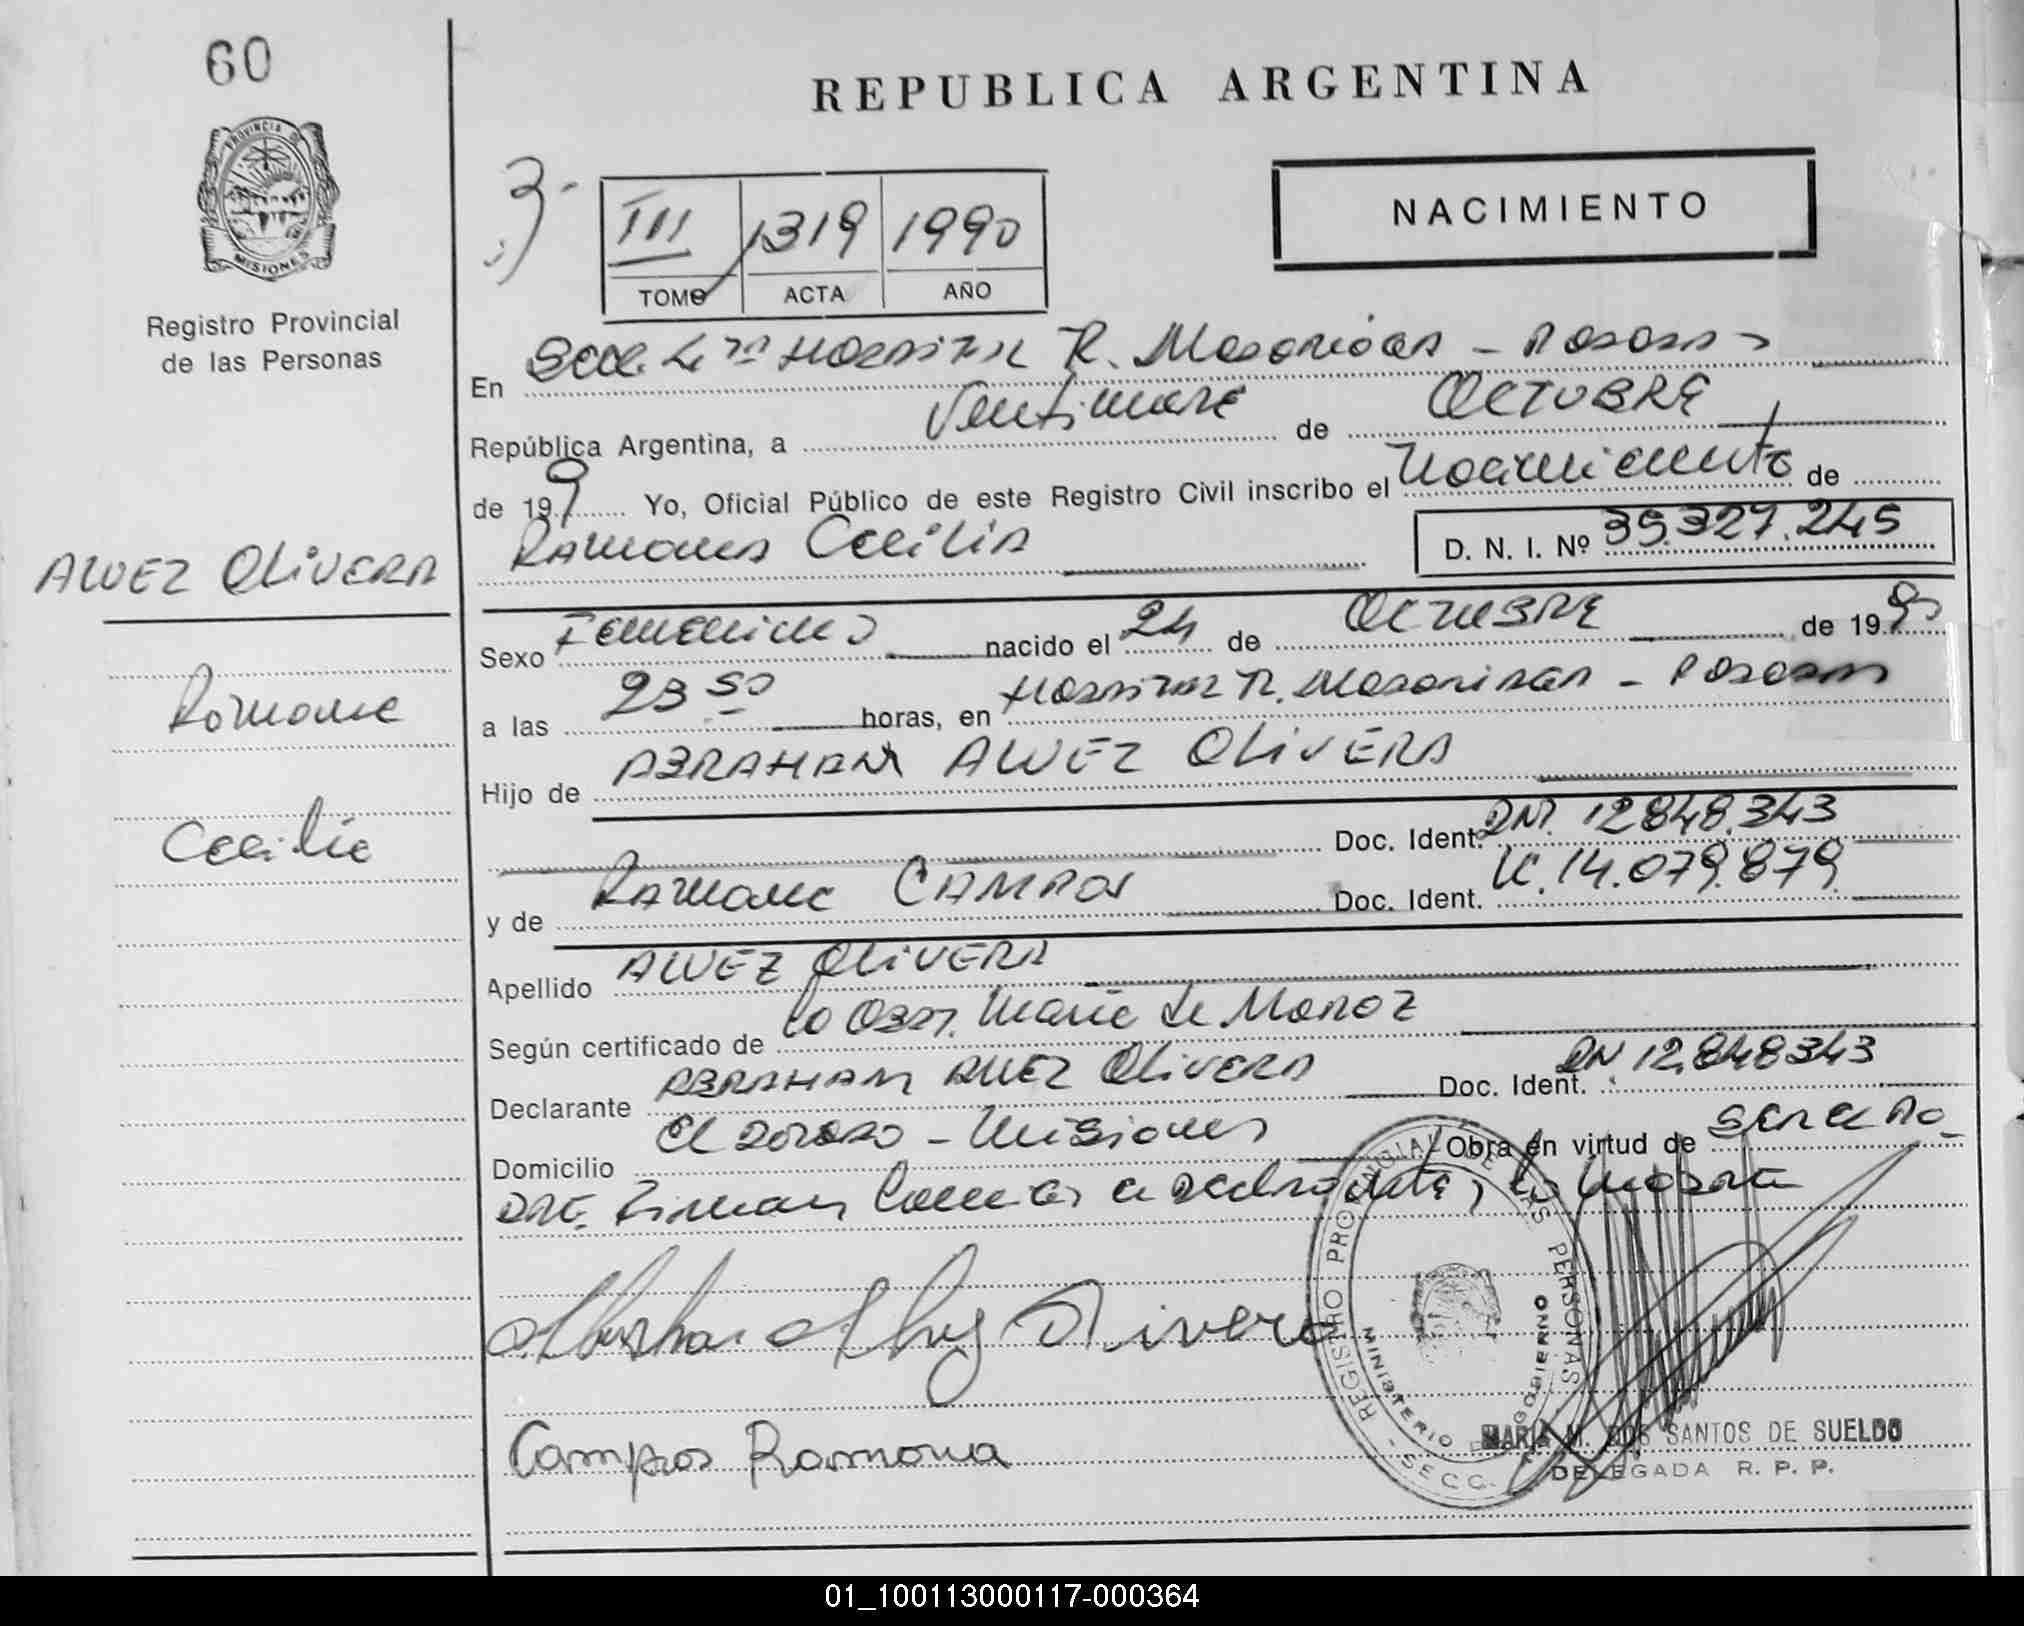 60
REPUBLICA ARGENTINA
PROVINCIA DE
MISIONES
Registro Provincial
de las Personas
III 1319 1990
TOMO ACTA AÑO
NACIMIENTO
En Secc. 4ta Hospital R. Madariaga - Posadas
República Argentina, a Veintinueve de OCTUBRE
de 199 Yo, Oficial Público de este Registro Civil inscribo el Nacimiento de
Ramona Cecilia
D. N. I. Nº 35.327.245
ALVEZ OLIVERA
Ramona
Cecilia
Sexo Femenino nacido el 24 de OCTUBRE de 1990
a las 23 50 horas, en Hospital R. Madariaga - Posadas
Hijo de ABRAHAM ALVEZ OLIVERA
Doc. Ident. DNI. 12.848.343
y de Ramona CAMPOS Doc. Ident. LC. 14.079.879
Apellido ALVEZ OLIVERA
Según certificado de la Obst. Maria de Moroz
Declarante ABRAHAM ALVEZ OLIVERA Doc. Ident. DNI 12.848343
Domicilio Eldorado - Misiones Obra en virtud de ser el Pa-
dre. Firman Conmigo el declarante y la madre
Olivera
Campos Ramona
REGISTRO PROVINCIAL DE LAS PERSONAS
MINISTERIO DE GOBIERNO
- SECC.
MARIA M. DOS SANTOS DE SUELDO
DELEGADA R. P. P.
01_100113000117-000364